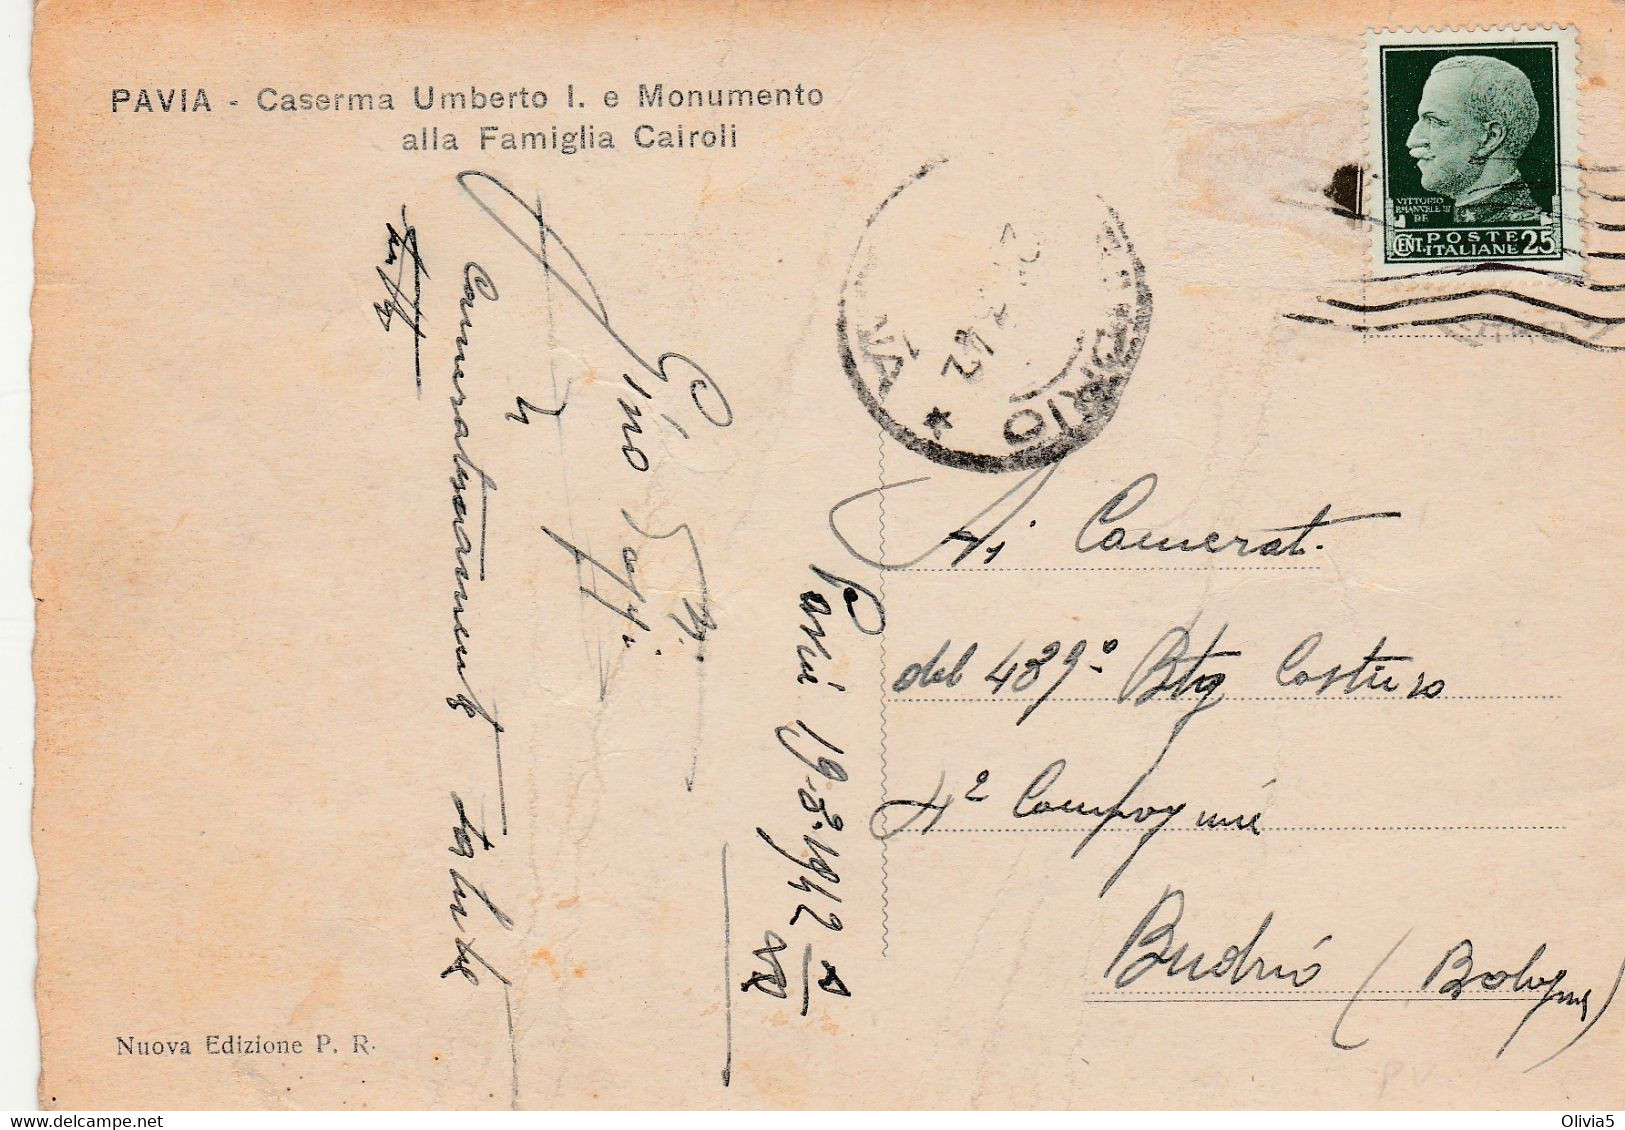 PAVIA - Caserma Umberto I. e Monumento
alla Famiglia Cairoli
VITTORIO
EMANUELE III
RE
POSTE
CENT. ITALIANE 25
Ai Camerati
del 489º Btg Costiero
4ª Compagnia
Budrio (Bologna)
Pavia 19-8-1942
XX
Cameratescamente saluta
Gino
Nuova Edizione P. R.
Olivia5